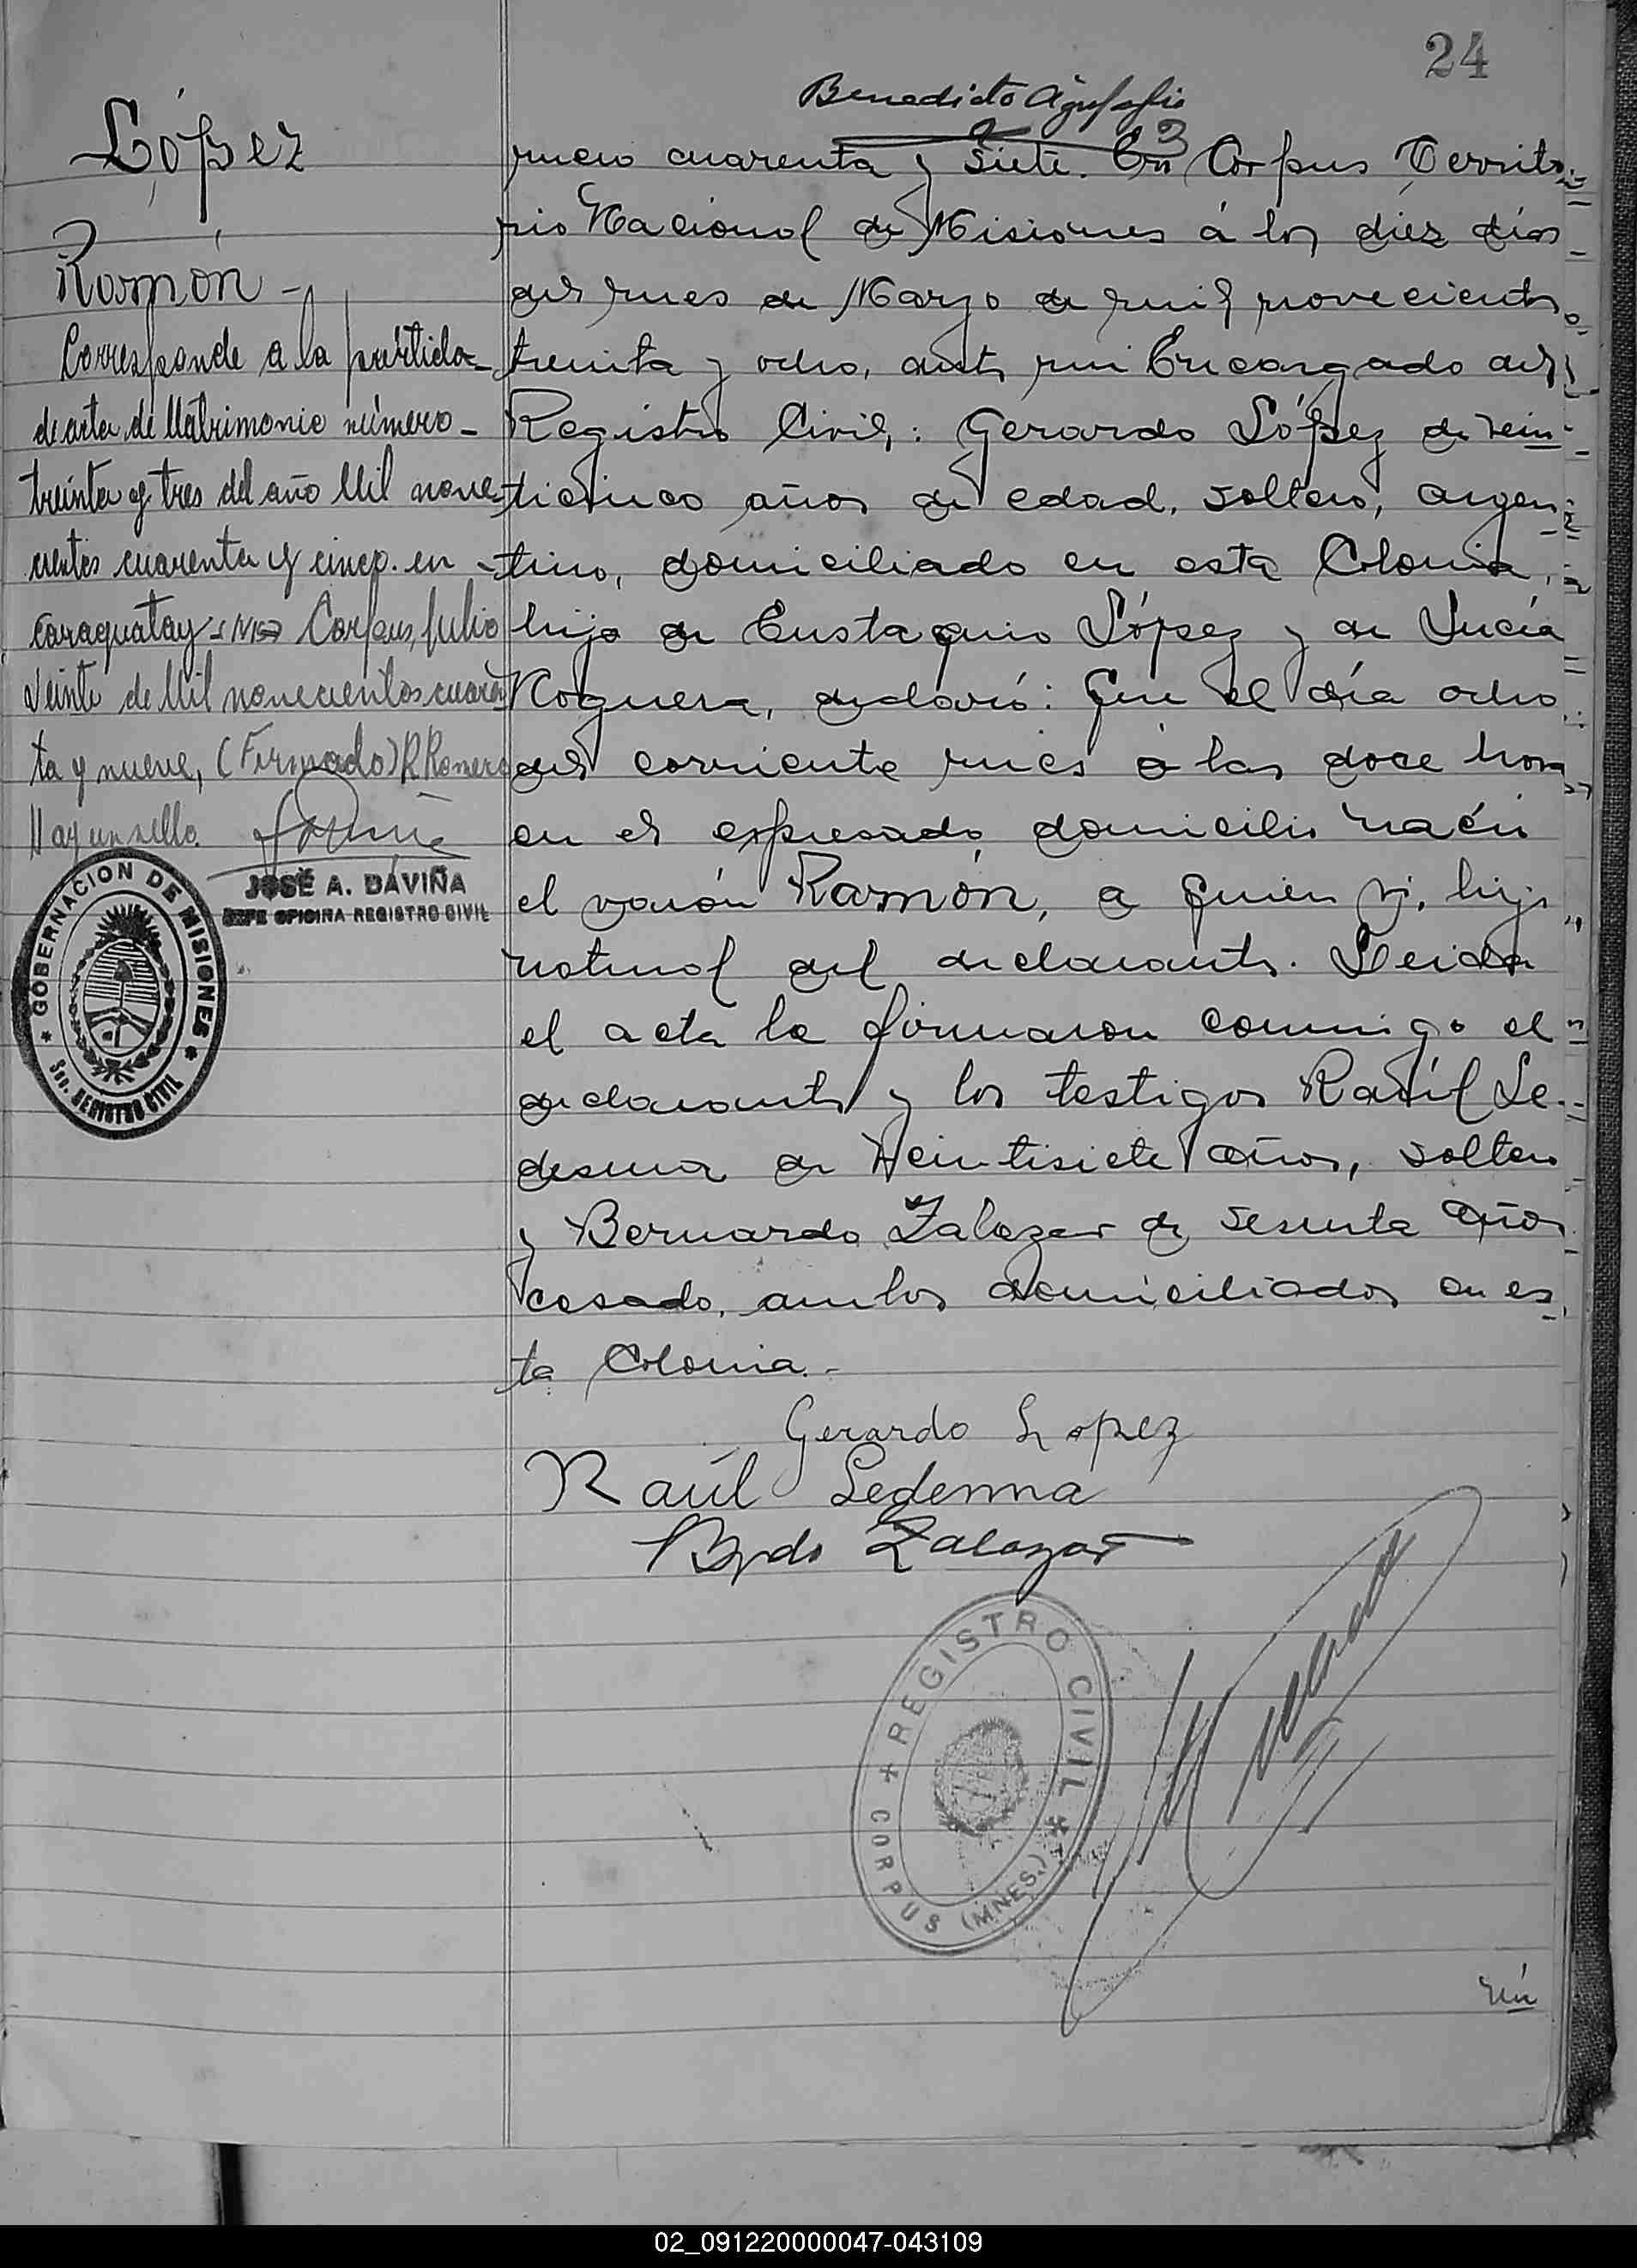 24
Benedicto
López
Ramón -
Corresponde a la partida
de acta de Matrimonio número -
treinta y tres del año Mil nove
cientos cuarenta y cinco. en -
Caraguatay - Corpus, julio
Veinte de Mil novecientos cuaren
ta y nueve, (Firmado) R Romero
Hay un sello.
JOSÉ A. DAVIÑA
JEFE OFICINA REGISTRO CIVIL
GOBERNACION DE MISIONES
Scc. REGISTRO CIVIL
mero cuarenta y siete. En Corpus Territo
rio Nacional de Misiones á los diez días
del mes de Marzo de mil novecientos
treinta y ocho, ante mi Encargado del
Registro Civil: Gerardo López de vein
ticinco años de edad, soltero, argen
tino, domiciliado en esta Colonia,
hijo de Eustaquio López y de Lucía
Noguera, declaró: Que el día ocho
del corriente mes á las doce horas
en el expresado domicilio nació
el varón Ramón, a quien vi, hijo
natural del declarante. Leida
el acta la firmaron conmigo el
declarante y los testigos Raúl Le
desma de veintisiete años, soltero
y Bernardo Zalazar de sesenta años
casado, ambos domiciliados en es
ta Colonia.-
Gerardo Lopez
Raúl Ledesma
Bzdo Zalazar
REGISTRO CIVIL
CORPUS (MNES.)
02_091220000047-043109